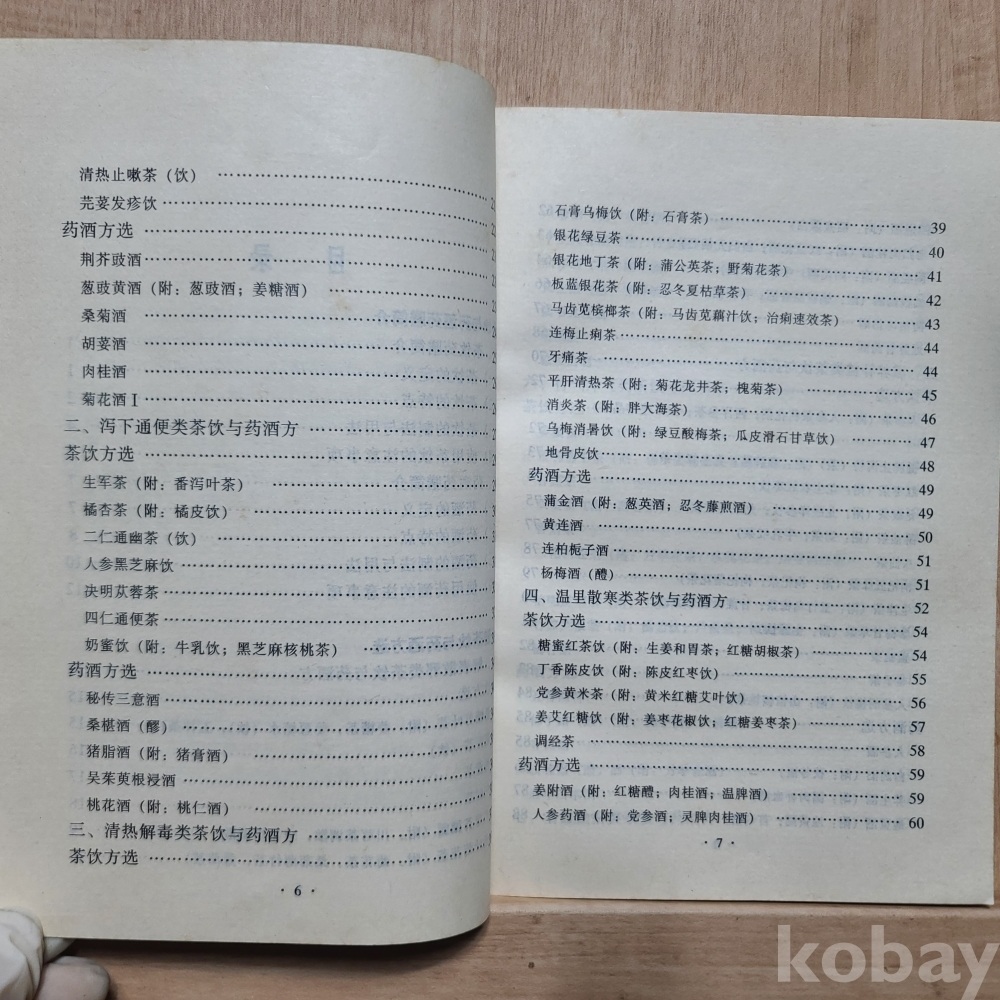 清热止嗽茶（饮） ……………………………… 2
芫荽发疹饮 ……………………………… 2
药酒方选 ……………………………… 2
荆芥豉酒 ……………………………… 2
葱豉黄酒（附：葱豉酒；姜糖酒） ……………… 2
桑菊酒 ……………………………… 2
胡荽酒 ……………………………… 2
肉桂酒 ……………………………… 2
菊花酒Ⅰ ……………………………… 2
二、泻下通便类茶饮与药酒方 ……………… 2
茶饮方选 ……………………………… 2
生军茶（附：番泻叶茶） ……………… 2
橘杏茶（附：橘皮饮） ……………… 3
二仁通幽茶（饮） ……………… 3
人参黑芝麻饮 ……………… 3
决明苁蓉茶 ………………
四仁通便茶 ………………
奶蜜饮（附：牛乳饮；黑芝麻核桃茶） ………………
药酒方选 ………………
秘传三意酒 ………………
桑椹酒（醪） ………………
猪脂酒（附：猪膏酒） ………………
吴茱萸根浸酒 ………………
桃花酒（附：桃仁酒） ………………
三、清热解毒类茶饮与药酒方 ………………
茶饮方选 ………………
· 6 ·
石膏乌梅饮（附：石膏茶） ……………… 39
银花绿豆茶 ……………… 40
银花地丁茶（附：蒲公英茶；野菊花茶） ……………… 41
板蓝银花茶（附：忍冬夏枯草茶） ……………… 42
马齿苋槟榔茶（附：马齿苋藕汁饮；治痢速效茶） ……… 43
连梅止痢茶 ……………… 44
牙痛茶 ……………… 44
平肝清热茶（附：菊花龙井茶；槐菊茶） ……… 45
消炎茶（附：胖大海茶） ……………… 46
乌梅消暑饮（附：绿豆酸梅茶；瓜皮滑石甘草饮） ……… 47
地骨皮饮 ……………… 48
药酒方选 ……………… 49
蒲金酒（附：葱英酒；忍冬藤煎酒） ……………… 49
黄连酒 ……………… 50
连柏栀子酒 ……………… 51
杨梅酒（醴） ……………… 51
四、温里散寒类茶饮与药酒方 ……………… 52
茶饮方选 ……………… 54
糖蜜红茶饮（附：生姜和胃茶；红糖胡椒茶） ……… 54
丁香陈皮饮（附：陈皮红枣饮） ……………… 55
党参黄米茶（附：黄米红糖艾叶饮） ……………… 56
姜艾红糖饮（附：姜枣花椒饮；红糖姜枣茶） ……… 57
调经茶 ……………… 58
药酒方选 ……………… 59
姜附酒（附：红糖醴；肉桂酒；温脾酒） ……………… 59
人参药酒（附：党参酒；灵脾肉桂酒） ……………… 60
· 7 ·
kobay